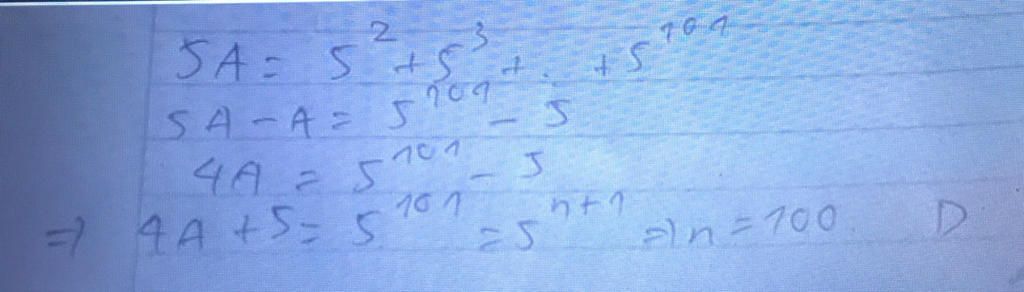 5A = 5² + 5³ + .. + 5¹⁰¹
5A - A = 5¹⁰¹ - 5
4A = 5¹⁰¹ - 5
=> 4A + 5 = 5¹⁰¹ = 5ⁿ⁺¹ => n = 100. D